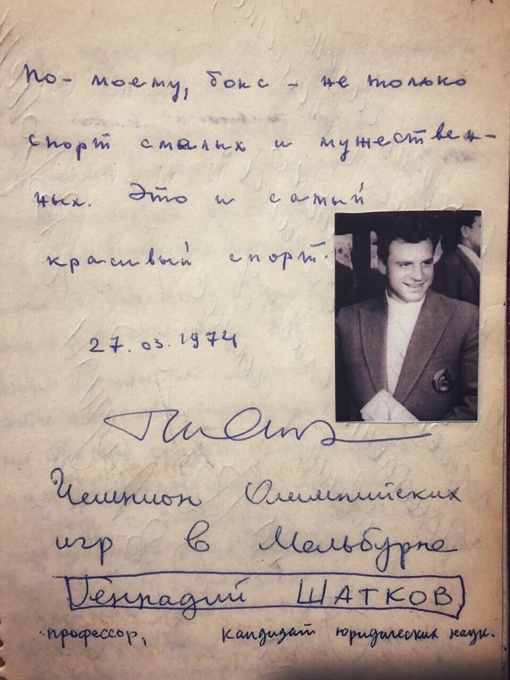 По- моему, бокс - не только
спорт смелых и мужествен-
ных. Это и самый
красивый спорт.
27.03.1974
Чемпион Олимпийских
игр в Мельбурне
Геннадий ШАТКОВ
профессор, кандидат юридических наук.